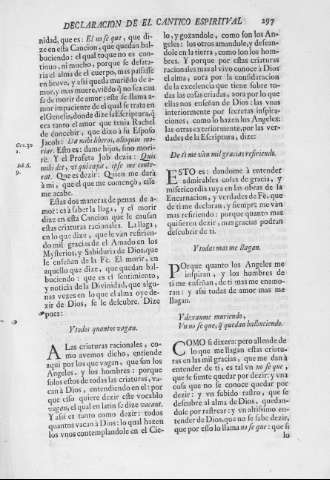 DECLARACION DE EL CANTICO ESPIRITVAL 297
nidad, que es: El un sè que, que di-
ze en esta Cancion, que quedan bal-
buciendo: el qual toque no es con-
tinuo, ni mucho, porque se desata-
ria el alma de el cuerpo, mas passase
en breve, y assi queda muriendo de a-
mor, y mas muere, viédo q̃ no sea cau
sa de morir de amor: este se llama a-
mor impaciente de el qual se trata en
el Genesis, donde dize la Escriptura, q̃
era tanto el amor que tenia Rachel
de concebir, que dixo à su Esposo
Gen. 30
1.
Jacob: Da mihi liberos, alioquin mo-
riar. Esto es: dame hijos, sino mori-
rè. Y el Profeta Job dezia: Quis
Job 6.
9.
mihi det, ut qui cœpit, ipse me conte-
rat. Que es dezir: Quien me darà
à mi, que el que me començò, esse
me acabe.
Estas dos maneras de penas de a-
mor: es à saber la llaga, y el morir
dize en esta Cancion que le causan
estas criaturas racionales. La llaga,
en lo que dize, que le van refirien-
do mil gracias de el Amado en los
Mysterios, y Sabiduria de Dios, que
le enseñan de la Fè. El morir, en
aquello que dize, que quedan bal-
buciendo: que es el sentimiento,
y noticia de la Divinidad, que algu-
nas vezes en lo que el alma oye de-
zir de Dios, se le descubre. Dize
pues:
Y todos quantos vagan.
A Las criaturas racionales, co-
mo avemos dicho, entiende
aqui por los que vagan, que son los
Angeles, y los hombres: porque
solos estos de todas las criaturas, va-
can à Dios, entendiendo en èl: por
que esso quiere dezir este vocablo
vagan, el qual en latin se dize vacant.
Y assi es tanto como dezir: todos
quantos vacan à Dios: lo qual hazen
los unos contemplandole en el Cie-
lo, y gozandole, como son los An-
geles: los otros amandole, y desean-
dole en la tierra, como son los hom-
bres. Y porque por estas criaturas
racionales mas al vivo conoce à Dios
el alma, aora por la consideracion
de la excelencia que tiene sobre to-
das las cosas criadas, aora por lo que
ellas nos enseñan de Dios: las unas
interiormente por secretas inspira-
ciones, como lo hazen los Angeles:
las otras exteriormente, por las ver-
dades de la Escriptura, dize:
De ti me van mil gracias refiriendo.
ESTO es: dandome à entender
admirables cosas de gracia, y
misericordia tuya en las obras de la
Encarnacion, y verdades de Fè, que
de ti me declaran, y siempre me van
mas refiriendo: porque quanto mas
quisieren dezir, mas gracias podràn
descubrir de ti.
Y todos mas me llagan.
POrque quanto los Angeles me
inspiran, y los hombres de
ti me enseñan, de ti mas me enamo-
ran: y assi todas de amor mas me
llagan.
Y dexanme muriendo,
Vn no se que, q̃ quedan balbuciendo.
COMO si dixera: pero allende de
lo que me llagan estas criatu-
ras en las mil gracias, que me dàn à
entender de ti, es tal un no sè que,
que se siente quedar por dezir: y una
cosa que no se conoce quedar por
dezir: y un subido rastro, que se
descubre al alma de Dios, quedan-
dole por rastrear: y un altissimo en-
tender de Dios, que no se sabe dezir,
que por esso lo llama no sè que: que si
lo